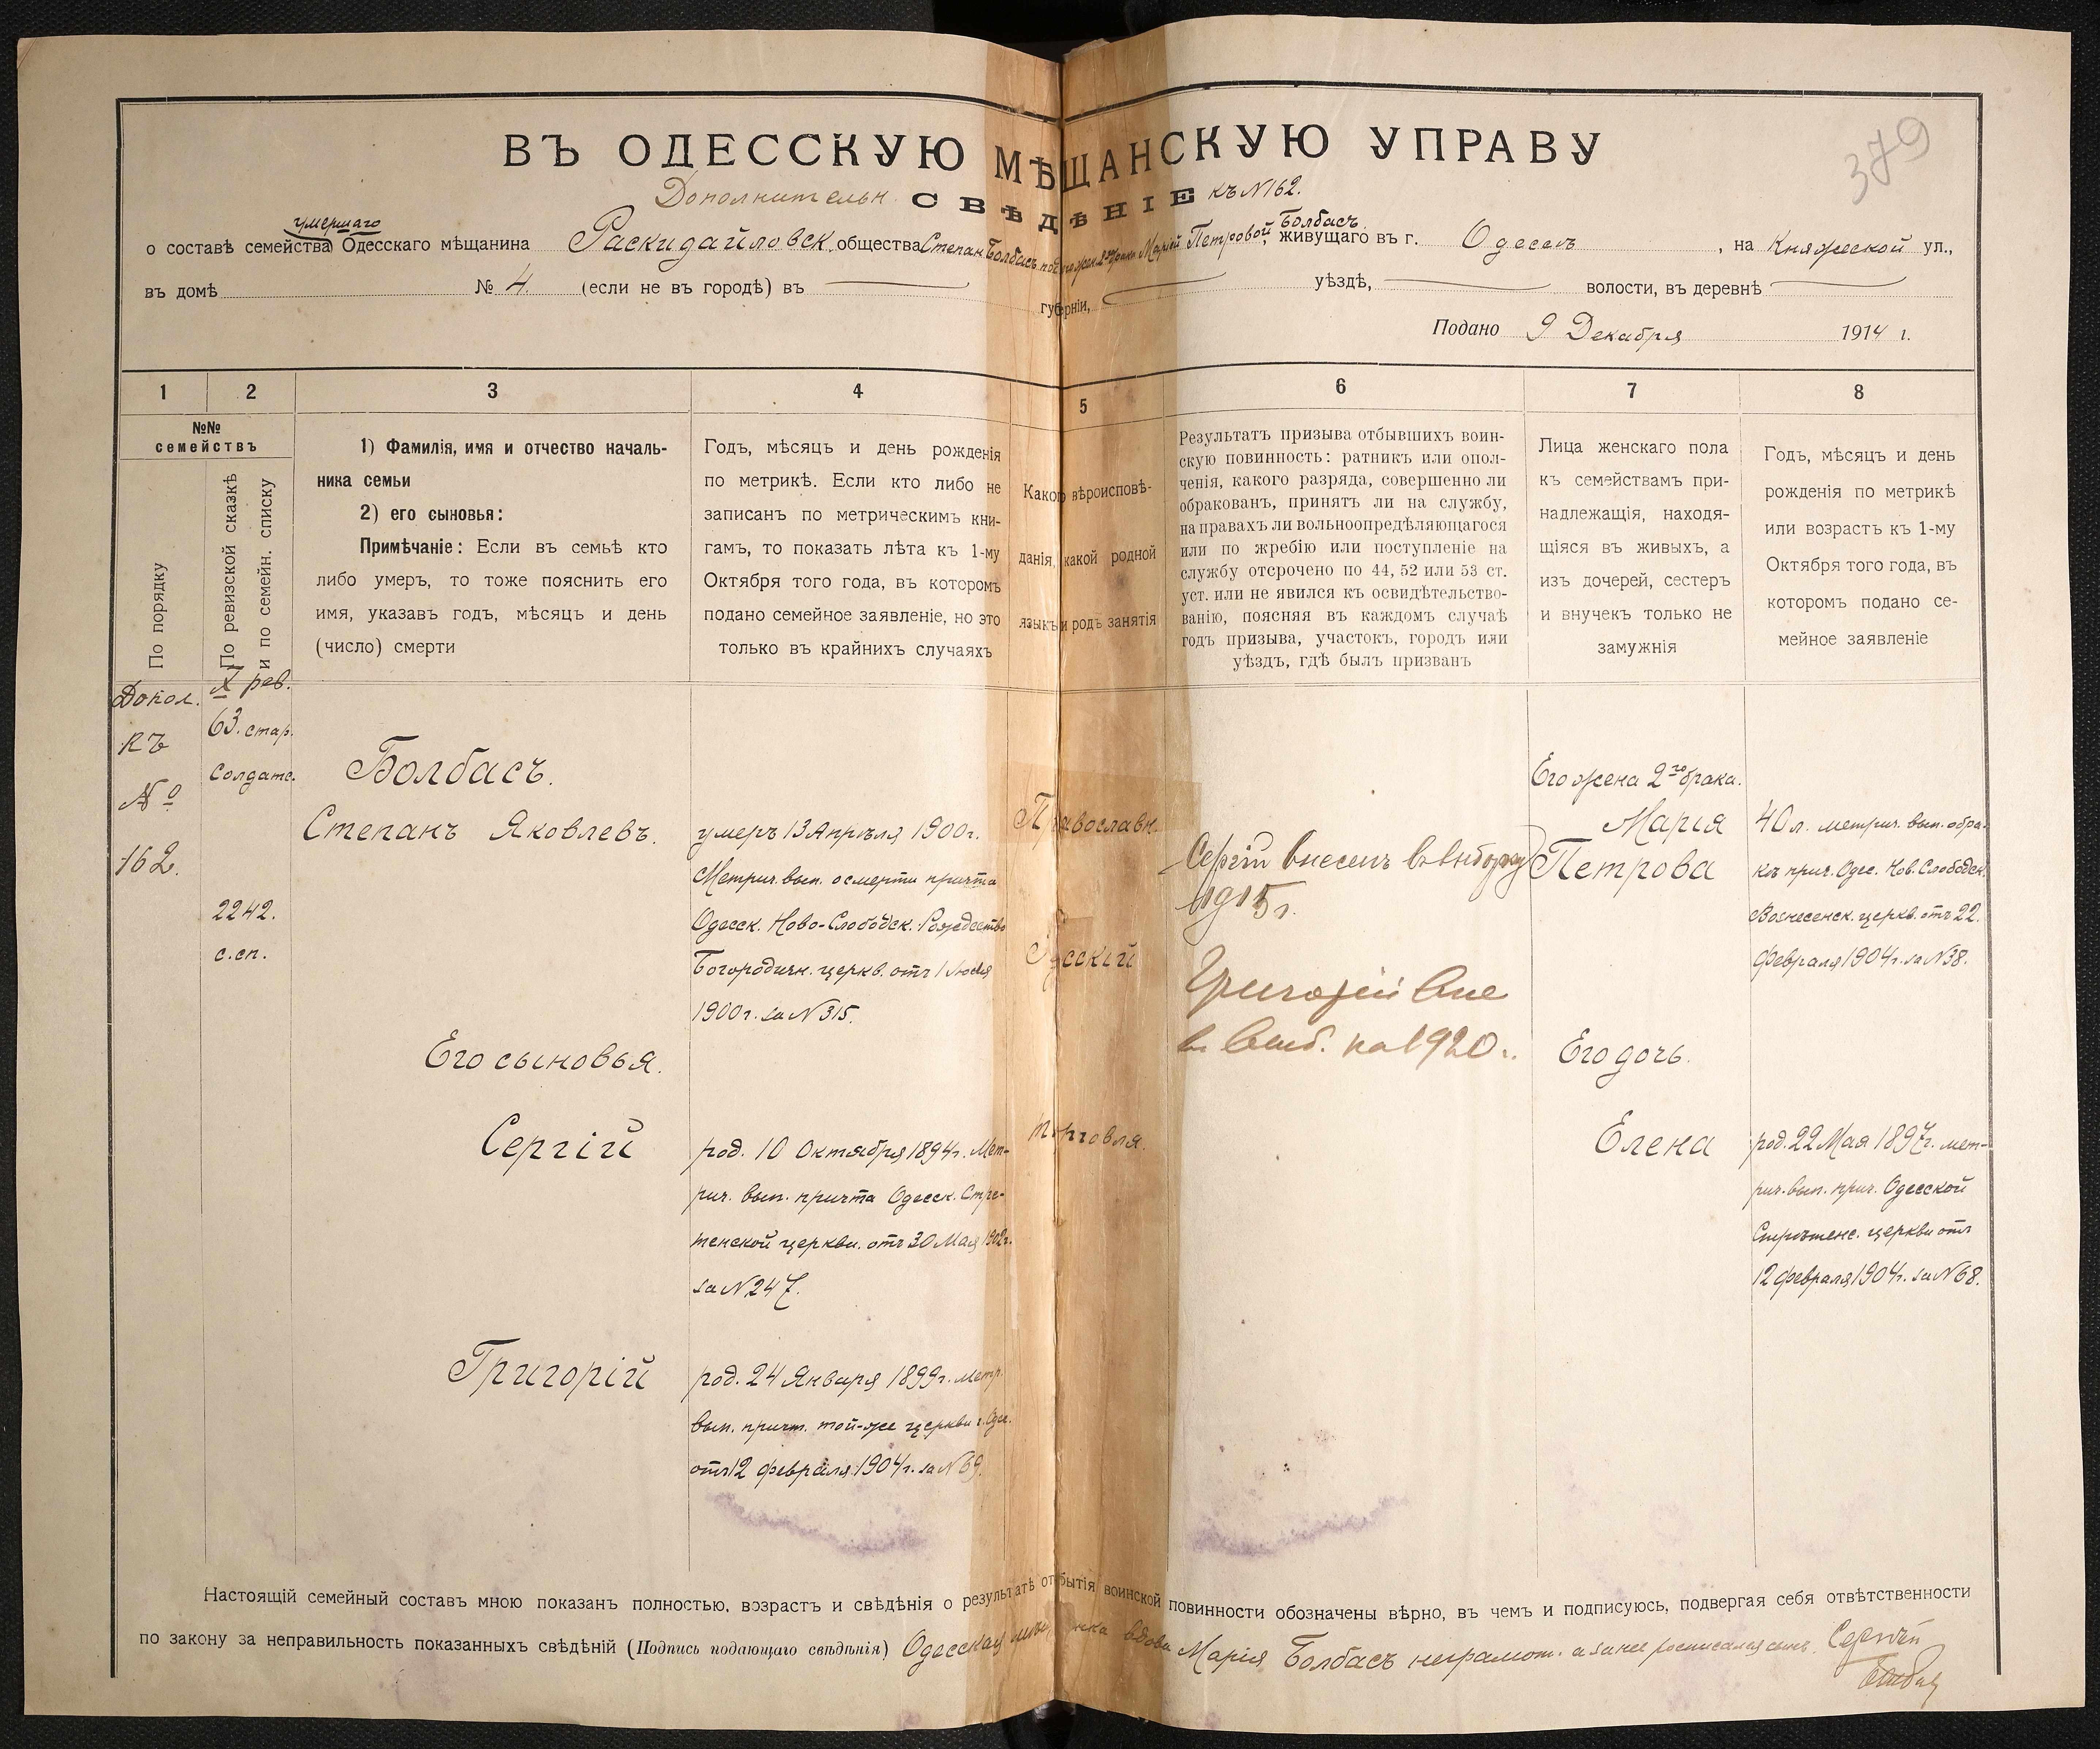 379
ВЪ ОДЕССКУЮ МѢЩАНСКУЮ УПРАВУ
Дополнительн. СВѢДѢНІЕ къ N 162.
умершаго
о составѣ семейства Одесскаго мѣщанина Раскидайловск. общества Степан Болбасъ Марией Петровой Болбасъ, живущаго въ г. Одессѣ, на Княжеской ул.,
въ домѣ № 4. (если не въ городѣ) въ губерніи, уѣздѣ, волости, въ деревнѣ
Подано 9 Декабря 1914 г.
1 2 3 4 5 6 7 8
№№ семействъ
По порядку
По ревизской сказкѣ и по семейн. списку
1) Фамилія, имя и отчество началь-
ника семьи
2) его сыновья:
Примѣчаніе: Если въ семьѣ кто
либо умеръ, то тоже пояснить его
имя, указавъ годъ, мѣсяцъ и день
(число) смерти
Годъ, мѣсяцъ и день рожденія
по метрикѣ. Если кто либо не
записанъ по метрическимъ кни-
гамъ, то показать лѣта къ 1-му
Октября того года, въ которомъ
подано семейное заявленіе, но это
только въ крайнихъ случаяхъ
Какого вѣроисповѣ-
данія, какой родной
языкъ и родъ занятія
Результатъ призыва отбывшихъ воин-
скую повинность: ратникъ или опол-
ченія, какого разряда, совершенно ли
обракованъ, принятъ ли на службу,
на правахъ ли вольноопредѣляющагося
или по жребію или поступленіе на
службу отсрочено по 44, 52 или 53 ст.
уст. или не явился къ освидѣтельство-
ванію, поясняя въ каждомъ случаѣ
годъ призыва, участокъ, городъ или
уѣздъ, гдѣ былъ призванъ
Лица женскаго пола
къ семействамъ при-
надлежащія, находя-
щіяся въ живыхъ, а
изъ дочерей, сестеръ
и внучекъ только не
замужнія
Годъ, мѣсяцъ и день
рожденія по метрикѣ
или возрастъ къ 1-му
Октября того года, въ
которомъ подано се-
мейное заявленіе
Допол.
къ
№
162.
X рев.
63. стар.
Солдатс.
2242.
с.сп.
Болбасъ.
Степанъ Яковлевъ.
умеръ 13 Апрѣля 1900г.
Метрич. вып. о смерти причта
Одесск. Ново-Слободск. Рождество
Богородичн. церкв. отъ 1 Іюля
1900г. за N 315.
Православн.
Русскій
торговля.
Сергій внесенъ в выборку
1915г.
Григорій вне
в выб. на 1920г.
Его жена 2го брака.
Марія
Петрова
40 л. метрич. вып. о бра-
кѣ прич. Одес. Нов. Слободск.
Вознесенск. церкв. отъ 22.
Февраля 1904г. за N 38.
Его сыновья.
Сергій
род. 10 Октября 1894г. Мет-
рич. вып. причта Одесск. Стре-
тенской церкви. отъ 30 Мая 1902г.
за N 247.
Григорій
род. 24 Января 1899г. метр.
вып. причт. той-же церкви г. Одес.
отъ 12 Февраля 1904г. за N 69.
Его дочь.
Елена
род. 22 Мая 1897г. мет-
рич. вып. прич. Одесской
Стрѣтенс. церкви отъ
12 Февраля 1904г. за N 68.
Настоящій семейный составъ мною показанъ полностью, возрастъ и свѣдѣнія о результатѣ отбытія воинской повинности обозначены вѣрно, въ чемъ и подписуюсь, подвергая себя отвѣтственности
по закону за неправильность показанныхъ свѣдѣній (Подпись подающаго свѣдѣнія) Одесская вдова Марія Болбасъ неграмот. а за нее росписался сынъ. Сергѣй
Болбас